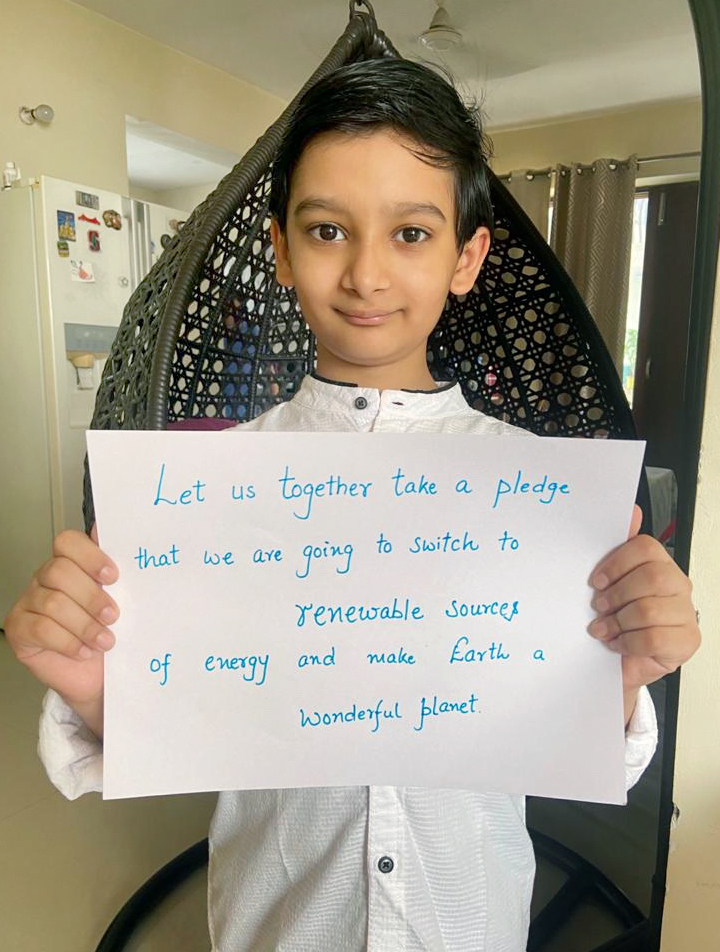 Let us together take a pledge
that we are going to switch to
renewable sources
of energy and make Earth a
wonderful planet.